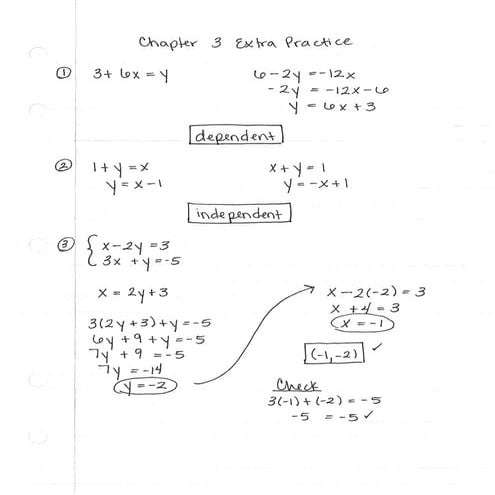 Chapter 3 Extra Practice
① 3 + 6x = y
6 - 2y = -12x
-2y = -12x - 6
y = 6x + 3
dependent
② 1 + y = x
y = x - 1
x + y = 1
y = -x + 1
independent
③ { x - 2y = 3
3x + y = -5
x = 2y + 3
3(2y + 3) + y = -5
6y + 9 + y = -5
7y + 9 = -5
7y = -14
y = -2
x - 2(-2) = 3
x + 4 = 3
x = -1
(-1, -2) ✓
Check
3(-1) + (-2) = -5
-5 = -5 ✓